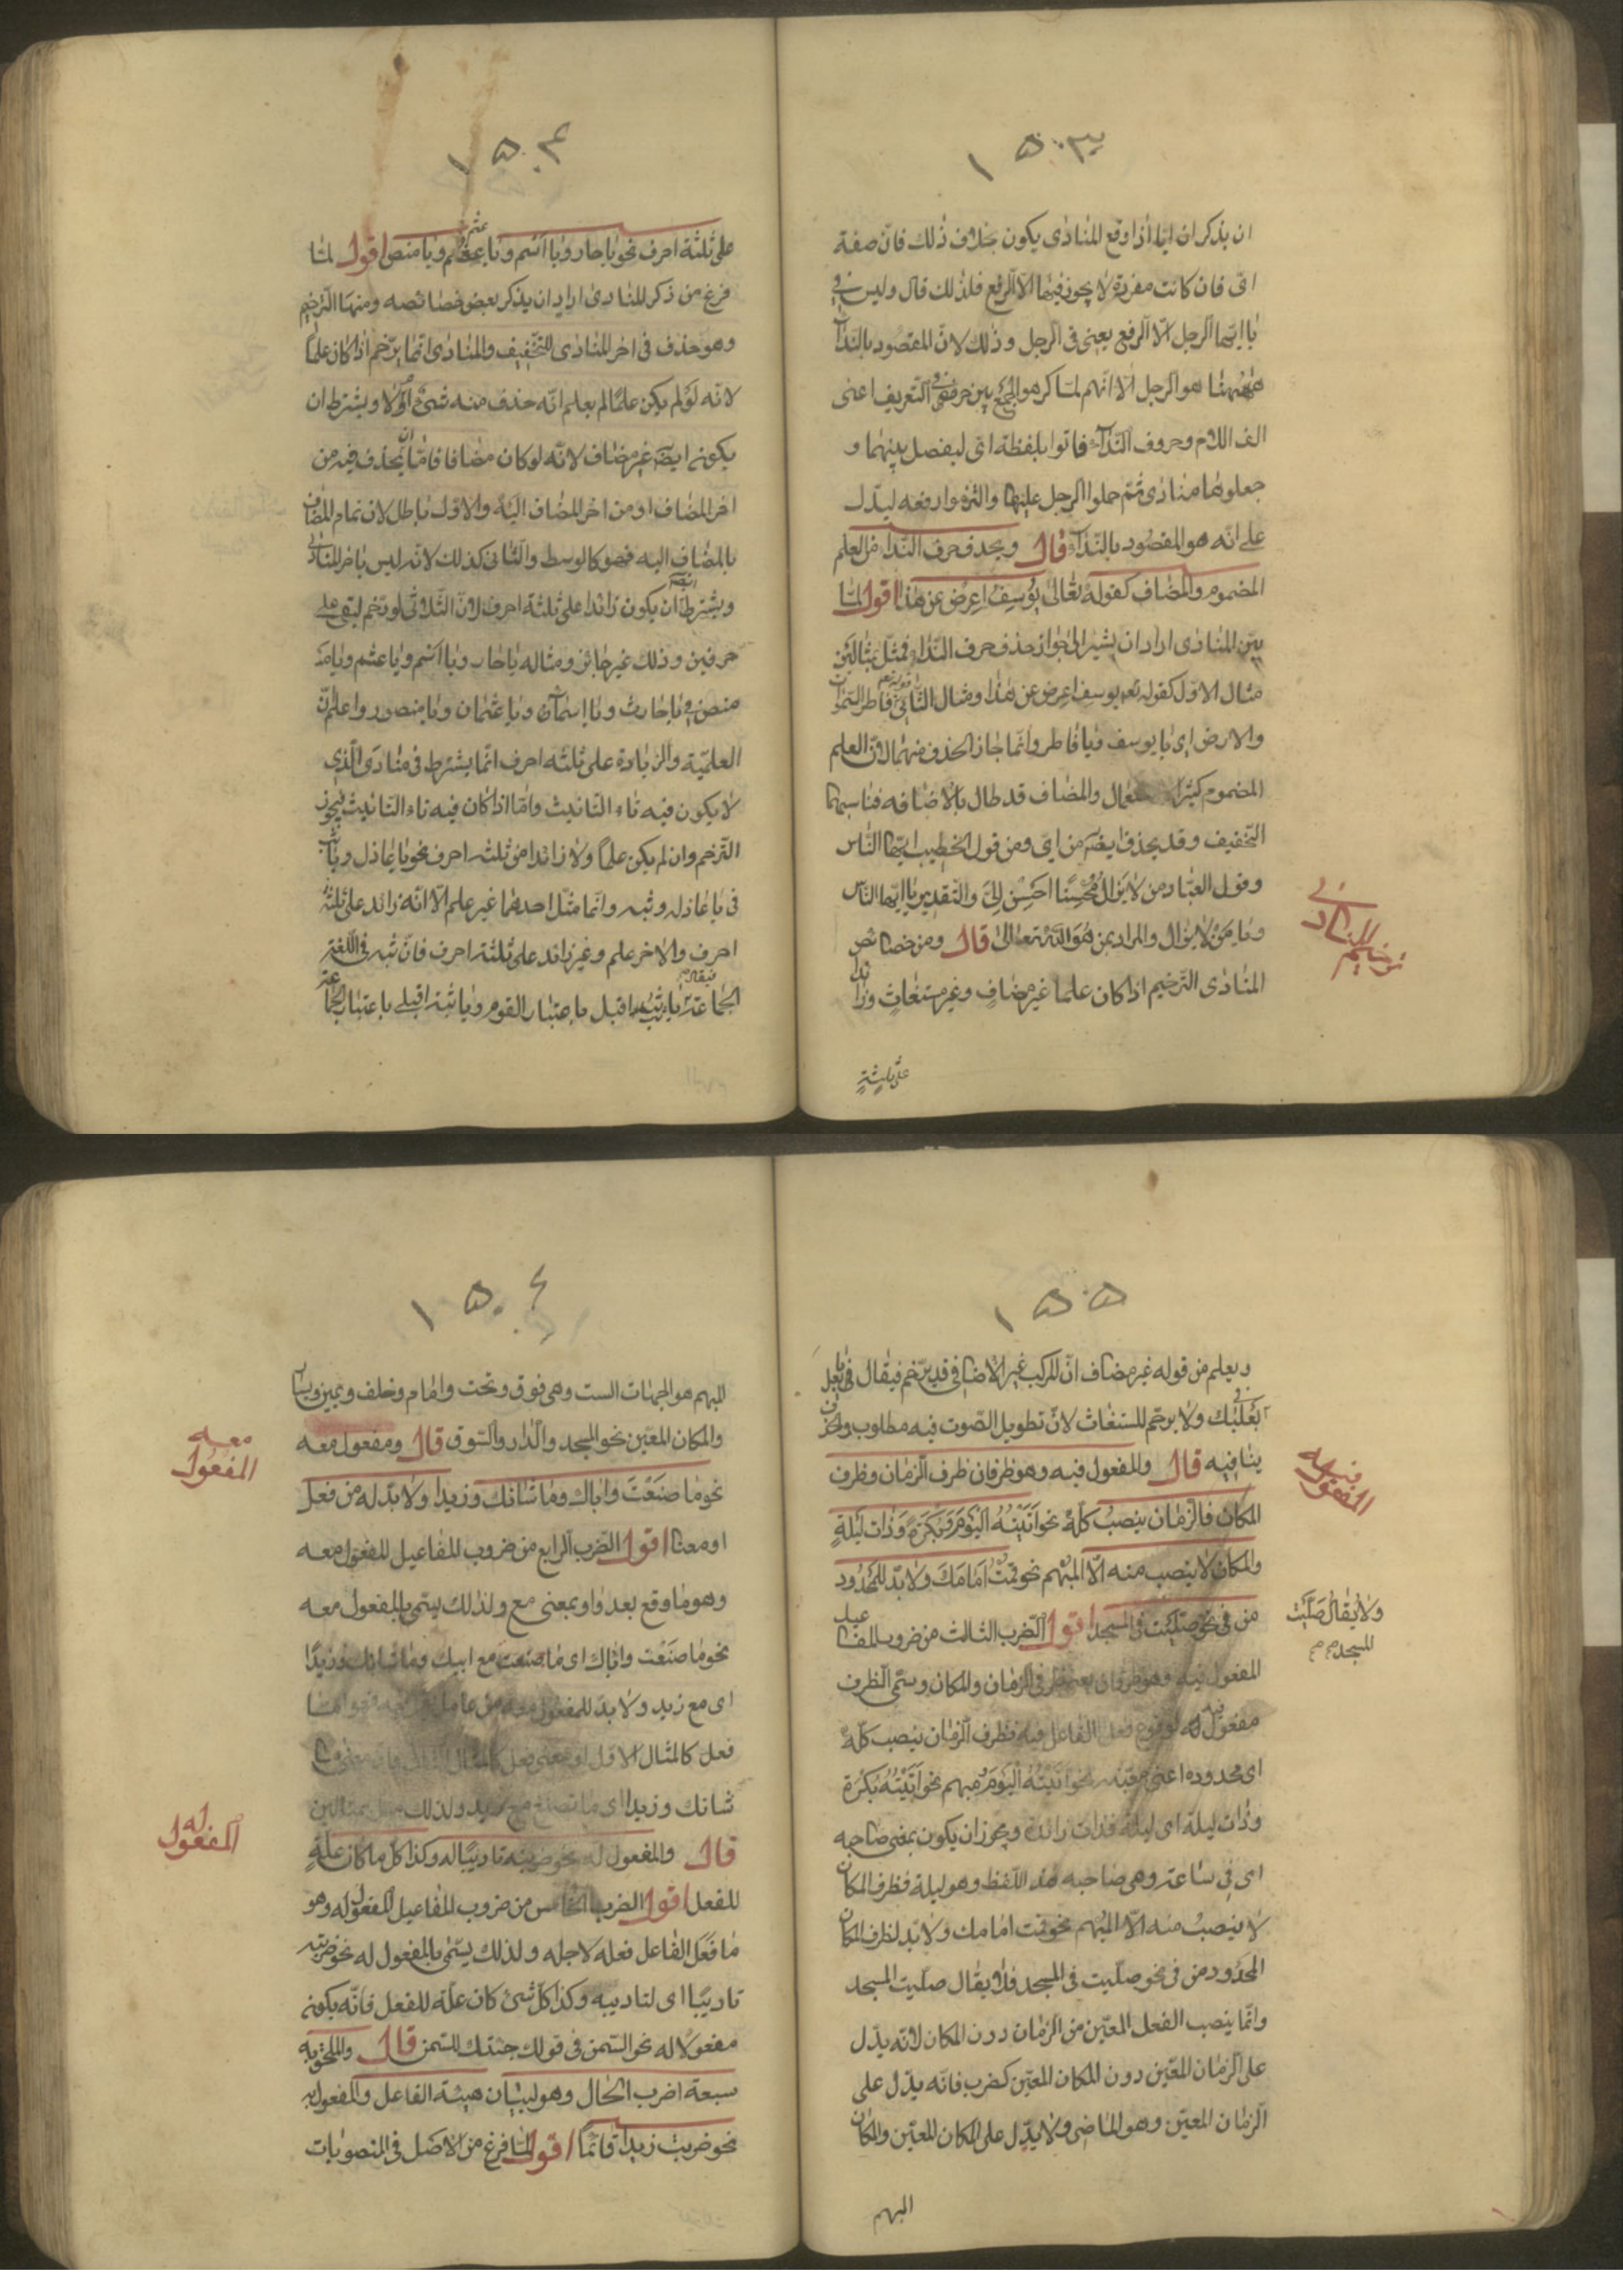 ۱۵۰۳
ان يذكر ان ايّا اذا وقع المنادى يكون بخلاف ذلك فانّ صفة
اىّ فان كانت مفردة لا يجوز فيها الّا الرفع فلذلك قال وليس فى
يا ايّها الرجل الّا الرفع يعنى فى الرجل وذلك لانّ المقصود بالندآء
ههنا هو الرجل الّا انّهم لمّا كرهوا الجمع بين حرفى التعريف اعنى
الف اللام وحروف الندآء فاتوا بلفظة اىّ ليفصل بينهما و
جعلوها منادى ثمّ حملوا الرجل عليها والتزموا رفعه ليدّل
على انّه هو المقصود بالندآء قال ويحذف حرف الندآء من العلم
المضموم والمضاف كقوله تعالى يوسف اعرض عن هذا اقول لمّا
بيّن المنادى اراد ان يشير الى جواز حذف حرف النداء فمثّل بمثالين
مثال الاوّل كقوله تعم يوسف اعرض عن هذا ومثال الثانى فاطر السموات
والارض اى يا يوسف ويا فاطر وانّما جاز الحذف منهما لانّ العلم
المضموم كثير الاستعمال والمضاف قد طال بالاضافه فناسبهما
التخفيف وقد يحذف ايضه من اىّ ومن قول الخطيب ايّها النّاس
وقول العبّاد من لا يزال مُحْسِنًا احسِن اِلىّ والتقدير يا ايّها النّاس
ويا من لا يزال والمراد بمن هو اللّه تعالى قال ومن خصائص
المنادى الترخيم اذا كان علما غير مضافٍ وغير مستغاثٍ وزائدا
ترخيم المنادى
على ثلثةٍ
۱۵۰۴
على ثلثة احرف نحو يا حار ويا اَسْم ويا عثم ويا منص اقول لمّا
فرغ من ذكر المنادى اراد ان يذكر بعض خصائصه ومنها الترخيم
وهو حذف فى اخر المنادى للتخفيف والمنادى انّما يرّخم اذا كان علماً
لانّه لو لم يكن علمًا لم يعلم انّه حذف منه شىء ام لا ويشترط ان
يكون ايضه غير مضاف لانّه لو كان مضافا فامّا ان يحذف فيه من
اخر المضاف او من اخر المضاف اليه والاوّل باطل لان تمام المضاف
بالمضاف اليه فهو كالوسط والثانى كذلك لانّه ليس باخر المنادى
ويشترط ايضه ان يكون زائدا على ثلثة احرف لانّ الثلاثى لو رخم لبقى على
حرفين وذلك غير جائز ومثاله يا حار ويا اسم ويا عثم ويا
منص فى يا حارث ويا اسمآء ويا عثمان ويا منصور واعلم انّ
العلميّة والزيادة على ثلثة احرف انّما يشترط فى منادى الّذى
لا يكون فيه تاء التانيث وامّا اذا كان فيه تاء التانيث فيجوز
الترخيم وان لم يكن علماً ولا زائدا من ثلثه احرف نحو يا عاذل ويا ثب
فى يا عاذلة وثبة وانّما مثّل احدهما غير علم الّا انّه زائد على ثلثة
احرف والاخر علم وغير زائد على ثلثة احرف فانّ ثبه فى اللّغة
الجماعة فيقال يا ثب اقبل باعتبار القوم ويا ثبة اقبلى باعتبار الجماعة
۱۵۰۵
ويعلم من قوله غير مضاف انّ المركب غير الاضافى قد يرّخم فيقال فى يا بعل
بَعْلَبَك ولا يرخّم المستغاث لانّ تطويل الصّوت فيه مطلوب والحذف
ينافيه قال والمفعول فيه وهو ظرفان ظرف الزمان وظرف
المكان فالزمان ينصب كلّه نحو اَتَيْتُه اليومَ وَبُكرَةً وَذات لَيلَةٍ
والمكان لا ينصب منه الّا المبهم نحو قمتُ اَمَامَكَ ولا بدّ للمحدود
من فى نحو صلّيت فى المسجد اقول الضرب الثالث من ضروب المفاعيل
ولا يقال صَلّيْت
المسجد
المفعول فيه
المفعول فيه وهو ظرفان يعنى ظرفى الزمان والمكان ويسمّى الظرف
مفعول فيه لوقوع فعل الفاعل فيه فظرف الزمان ينصب كلّه
اى محدوده اعنى معيّنه نحو اَتَيْتُهُ اليَوْمَ ومبهم نحو اَتَيْتُهُ بُكْرَة
وذات ليلة اى ليلة فذات زائدة ويجوز ان يكون بمعنى صاحبه
اى فى ساعة وهى صاحبه هذه اللّفظ وهو ليلة فظرف المكان
لا ينصبُ منه الّا المبهم نحو قمت امامك ولا بّد لظرف المكان
المحدود من فى نحو صلّيت فى المسجد فلا يقال صلّيت المسجد
وانّما ينصب الفعل المعيّن من الزمان دون المكان لانّه يدّل
على الزمان المعيّن دون المكان المعيّن كضرب فانّه يدّل على
الزمان المعيّن وهو الماضى ولا يدّل على المكان المعيّن والمكان
المبهم
۱۵۰۶
المبهم هو الجهات الست وهى فوق وتحت وامام وخلف ويمين ويسار
والمكان المعيّن نحو المسجد والدار والسوق قال ومفعول معه
نحو ما صنَعْتَ واباك وما شانك وزيدا ولا بدّ له من فعل
او معناه اقول الضرب الرابع من ضروب المفاعيل المفعول معه
وهو ما وقع بعد واو بمعنى مع ولذلك يسمّى بالمفعول معه
نحو ما صنَعْت واباك اى ما صنعت مع ابيك وما شانك وزيدًا
اى مع زيد ولا بدّ للمفعول معه من عامل
فعل كالمثال الاوّل او معنى فعل كالمثال الثانى فان معنى ما
شانك وزيدا اى ما تصنع مع زيد ولذلك مثل بمثالين
قال والمفعول له نحو ضربته تاديبًا له وكذا كل ما كان علّةً
للفعل اقول الضرب الخامس من ضروب المفاعيل المفعول له وهو
ما فعَل الفاعل فعله لاجله ولذلك يسمّى بالمفعول له نحو ضربته
تاديبًا اى لتاديبه وكذا كلّ شىء كان علّة للفعل فانّه يكون
مفعولا له نحو السّمن فى قولك جئتك للسّمن قال والملحق به
سبعة اضرب الحال وهو لبيان هيئة الفاعل والمفعول به
نحو ضربت زيداً قائماً اقول لمّا فرغ من الاصل فى المنصوبات
المفعول معه
المفعول له